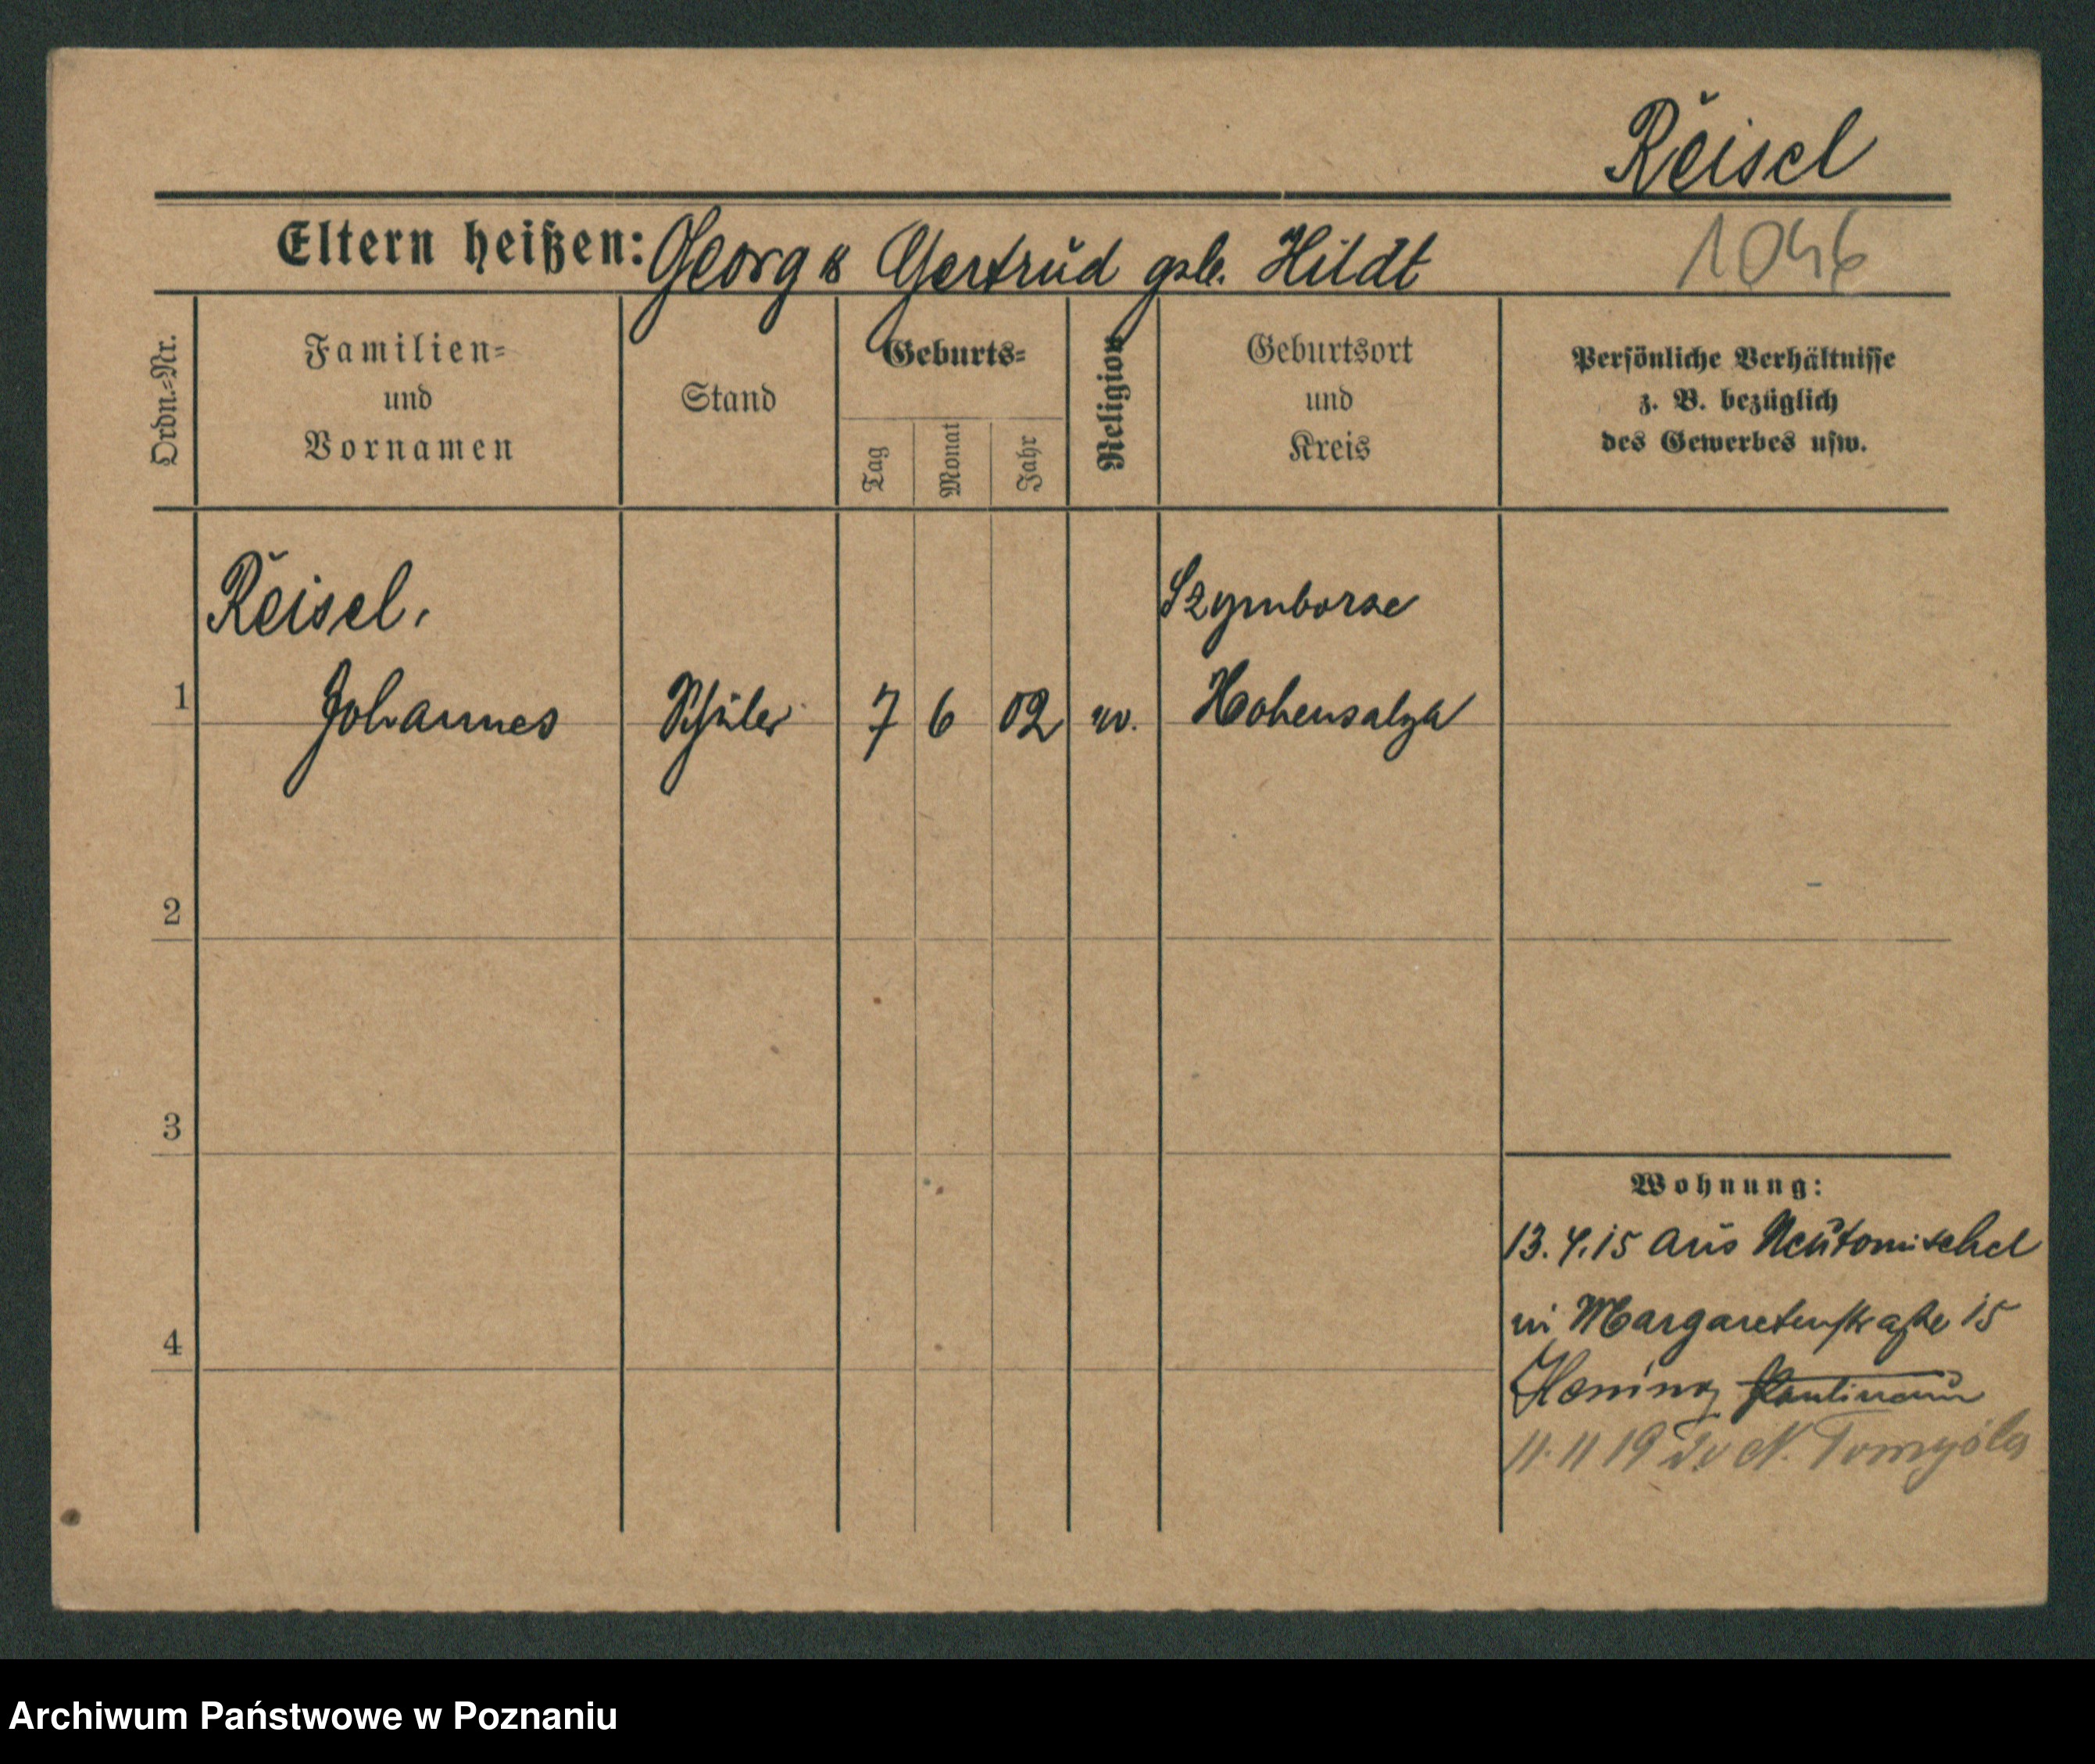 Reisel
Eltern heißen: Georg & Gertrud geb. Hildt
1046
Ordn.-Nr.
Familien-
und
Vornamen
Stand
Geburts-
Tag
Monat
Jahr
Religion
Geburtsort
und
Kreis
Persönliche Verhältnisse
z. B. bezüglich
des Gewerbes usw.
Reisel,
Szymborze
1
Johannes
Schüler
7
6
02
ev.
Hohensalza
2
3
4
Wohnung:
13.4.15 aus Neutomischel
in Margaretenstraße 15
Hening
11.11 19 do N. Tomyśla
Archiwum Państwowe w Poznaniu